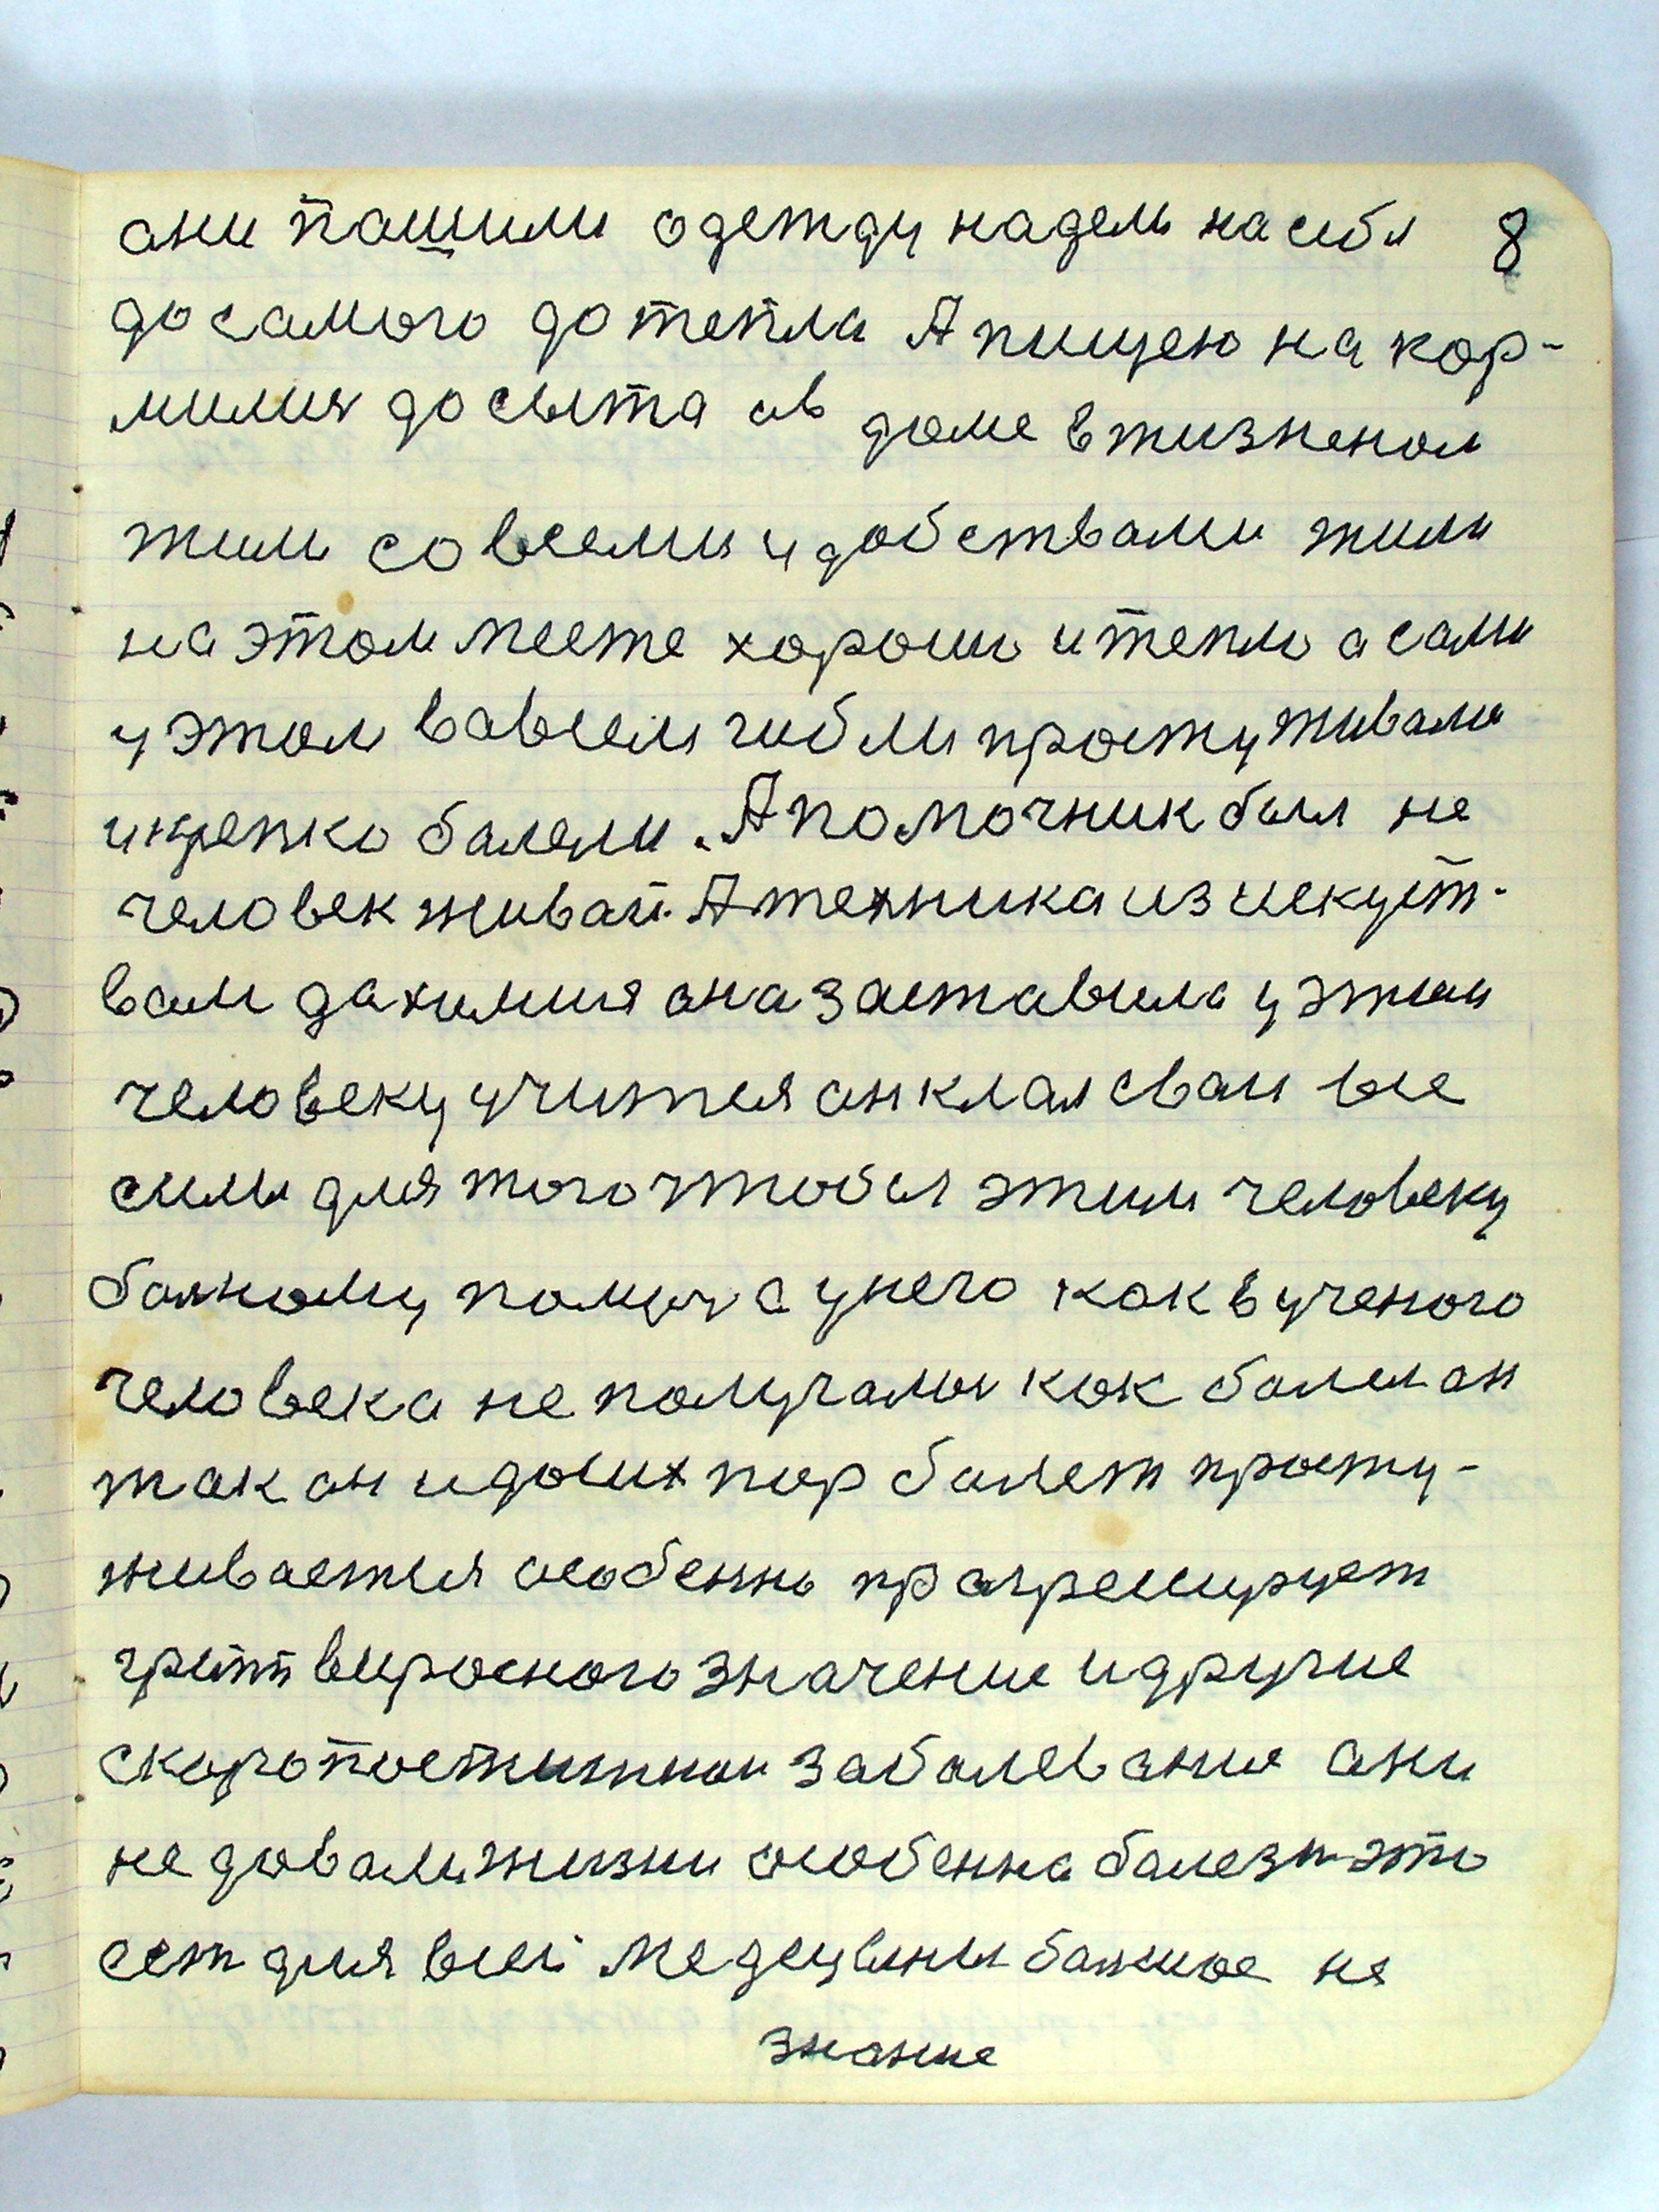 они пошили одежду надели на себя 8
до самого до тепла А пищею на кор-
милися до сыта а в доме в жизненом
жили со всеми удобствами жили
на этом месте хорошо и тепло а сами
у этом во всем гибли простуживали
и крепко балели. А помочник был не
человек живой. А техника из искуст-
вом да химия она заставила у этим
человеку учится он клал свои все
силы для того чтобы этим человеку
балному помоч а у него как в ученого
человека не получалось как болел он
так он и до сих пор болеет просту-
живается особенно прагресирует
грипп виросного значение и другие
скоропостижнои заболевание они
не довали жизни особенна болезн это
ест для всей медецыны болшое не
знание